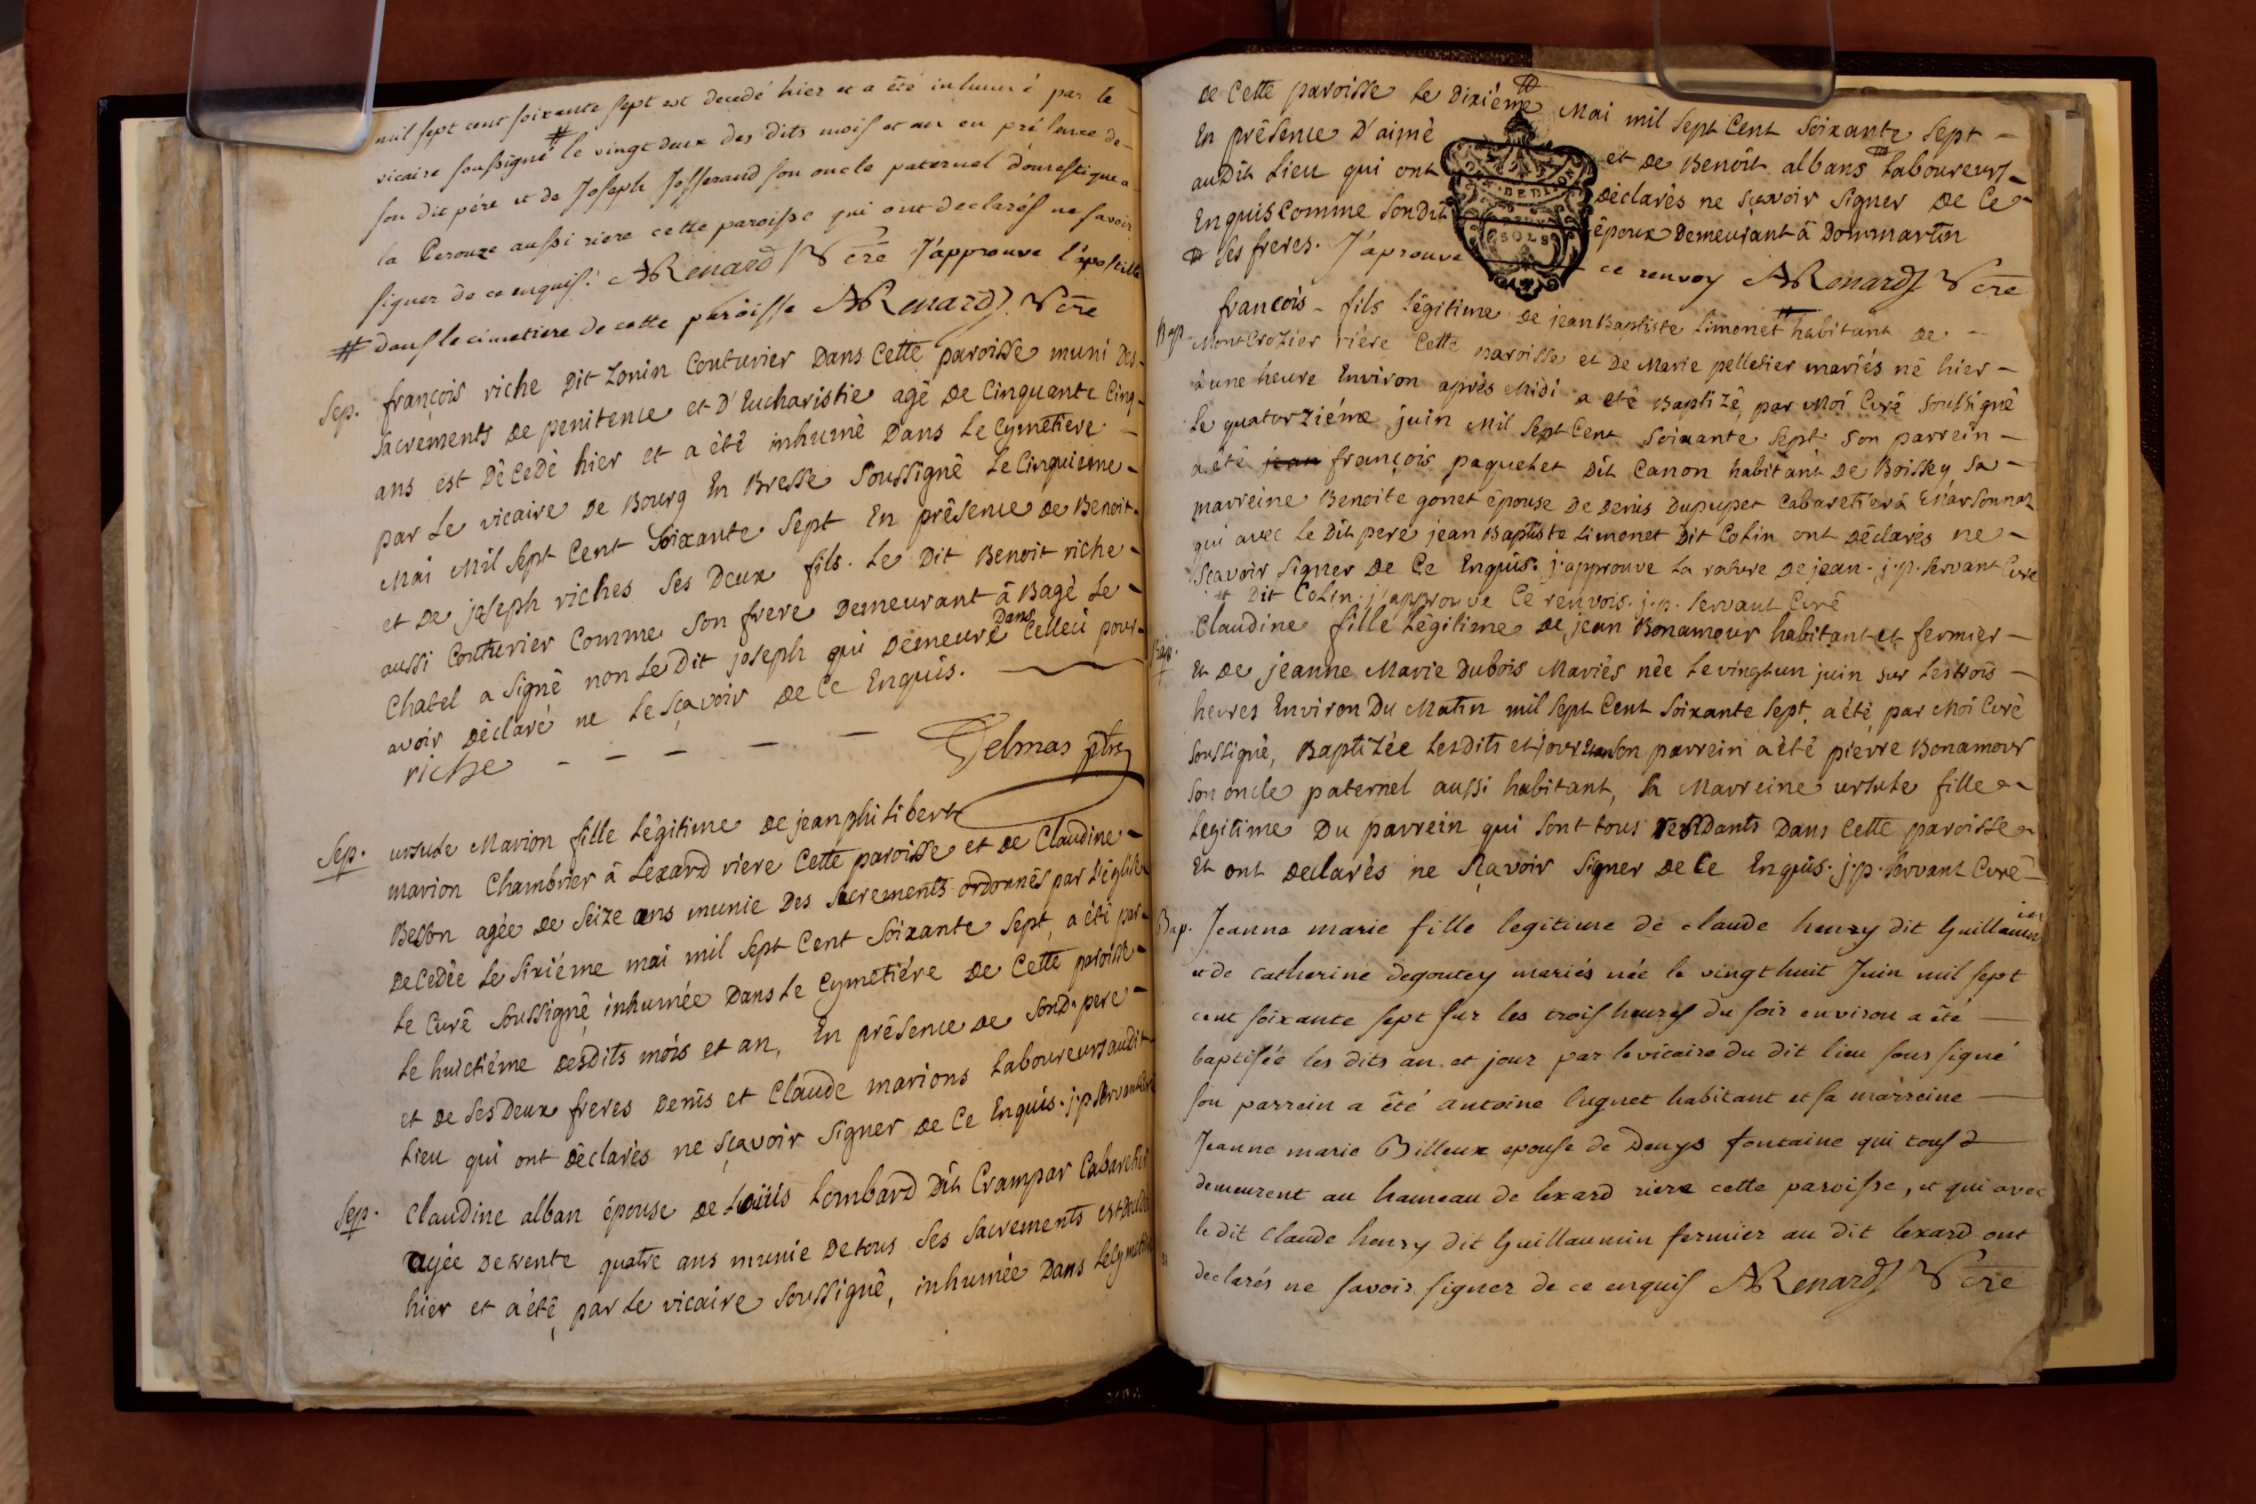 mil sept cent soixante sept est decedé hier et a été inhumé par le
vicaire soussigné # le vingt deux des dits mois et an en présence de
son dit pére et de Joseph Josserand son oncle paternel domestique a
la Perouze aussi riere cette paroisse qui ont declarés ne savoir
signer de ce enquis. ARenard Vcre J'approuve l'apostille
# dans le cimetiere de cette paroisse ARenard Vcre
Sep. françois riche Dit Zonin Couturier Dans Cette paroisse muni Des
sacrements De penitence et D'Eucharistie agé De Cinquante Cinq
ans est Décedé hier et a été inhumé Dans Le Cymetiere
par Le vicaire De Bourg En Bresse Soussigné Le Cinquieme
Mai Mil Sept Cent Soixante Sept En présence De Benoit
et De joseph riches Ses Deux fils. Le Dit Benoit riche
aussi Couturier Comme Son frere Demeurant â Bagé Le
Chatel a Signé non Le Dit joseph qui Demeure Dans Celleci pour
avoir Déclaré ne Le Sçavoir De Ce Enquis.
riche - - - - - Delmas ptre
Sep. ursule Marion fille Légitime De jean philibert
marion Chambrier â Lexard riere Cette paroisse et De Claudine
Besson agée De Seize ans munie Des Sacrements ordonnés par L'église
Decedée Le Sixiéme mai mil Sept Cent Soixante Sept, a été par
Le Curé Soussigné inhumée Dans Le Cymetiére De Cette paroisse
Le huictiéme Desdits mois et an, En présence De Sond. pere
et De Ses Deux freres Denis et Claude marions Laboureurs audit
Lieu qui ont déclarés ne Sçavoir Signer De Ce Enquis. j.p. Servant Curé
Sep. Claudine alban épouse De Loüis Lombard Dit Crampar Cabaretier
agée De trente quatre ans munie De tous Ses Sacrements est Decedée
hier et a été par Le vicaire Soussigné, inhumée Dans Le Cymetiére
De Cette paroisse Le Dixiéme Mai mil Sept Cent Soixante Sept
En présence D'aimé et De Benoit albans # Laboureurs
audit Lieu qui ont Déclarés ne Sçavoir Signer De Ce
Enquis Comme Sondit époux Demeurant â Dommartin
# Les freres. J'aprouve ce renvoy ARenard Vcre
Bap. francois fils Légitime De jean Baptiste Limonet # habitant De
MontCrozier riére Cette paroisse et De Marie pelletier mariés né hier
â une heure Environ aprés Midi a eté Baptizé, par Moi Curé Soussigné
Le quatorziéme juin Mil Sept Cent Soixante Sept Son parrein
a été jean françois paquelet Dit Canon habitant De Boissey Sa
marreine Benoite gonet épouse De Denis Dupupet Cabaretier â Marsonnaz
qui avec Le Dit pere jean Baptiste Limonet Dit Colin ont Déclarés ne
Sçavoir Signer De Ce Enquis. j'approuve La rature De jean. j.p. Servant Curé
# Dit Colin. j'approuve Ce renvois. j.p. Servant Curé
Bap. Claudine fille Légitime De jean Bonamour habitant et fermier
Et De jeanne Marie Dubois Mariés née Le vingt un juin sur Les trois
heures Environ Du Matin mil Sept Cent Soixante Sept, a été par Moi Curé
Soussigné, Baptizée Lesdits et jour Son parrein a été pierre Bonamour
Son oncle paternel aussi habitant, Sa Marreine ursule fille
Legitime Du parrein qui Sont tous residants Dans Cette paroisse
Et ont declarés ne Sçavoir Signer De Ce Enquis. j.p. Servant Curé
Bap. Jeanne marie fille legitime de claude henry dit Guillaumin
et de catherine degoutey mariés née le vingt huit Juin mil sept
cent soixante sept sur les trois heures du soir environ a été
baptisée les dits an et jour par le vicaire du dit lieu sous signé
son parrein a été antoine luguet habitant et sa marreine
Jeanne marie Billoux epouse de Denys fontaine qui tous
demeurent au hameau de lexard riere cette paroisse, et qui avec
le dit Claude henry dit Guillaumin fermier au dit lexard ont
declarés ne savoir signer de ce enquis ARenard Vcre